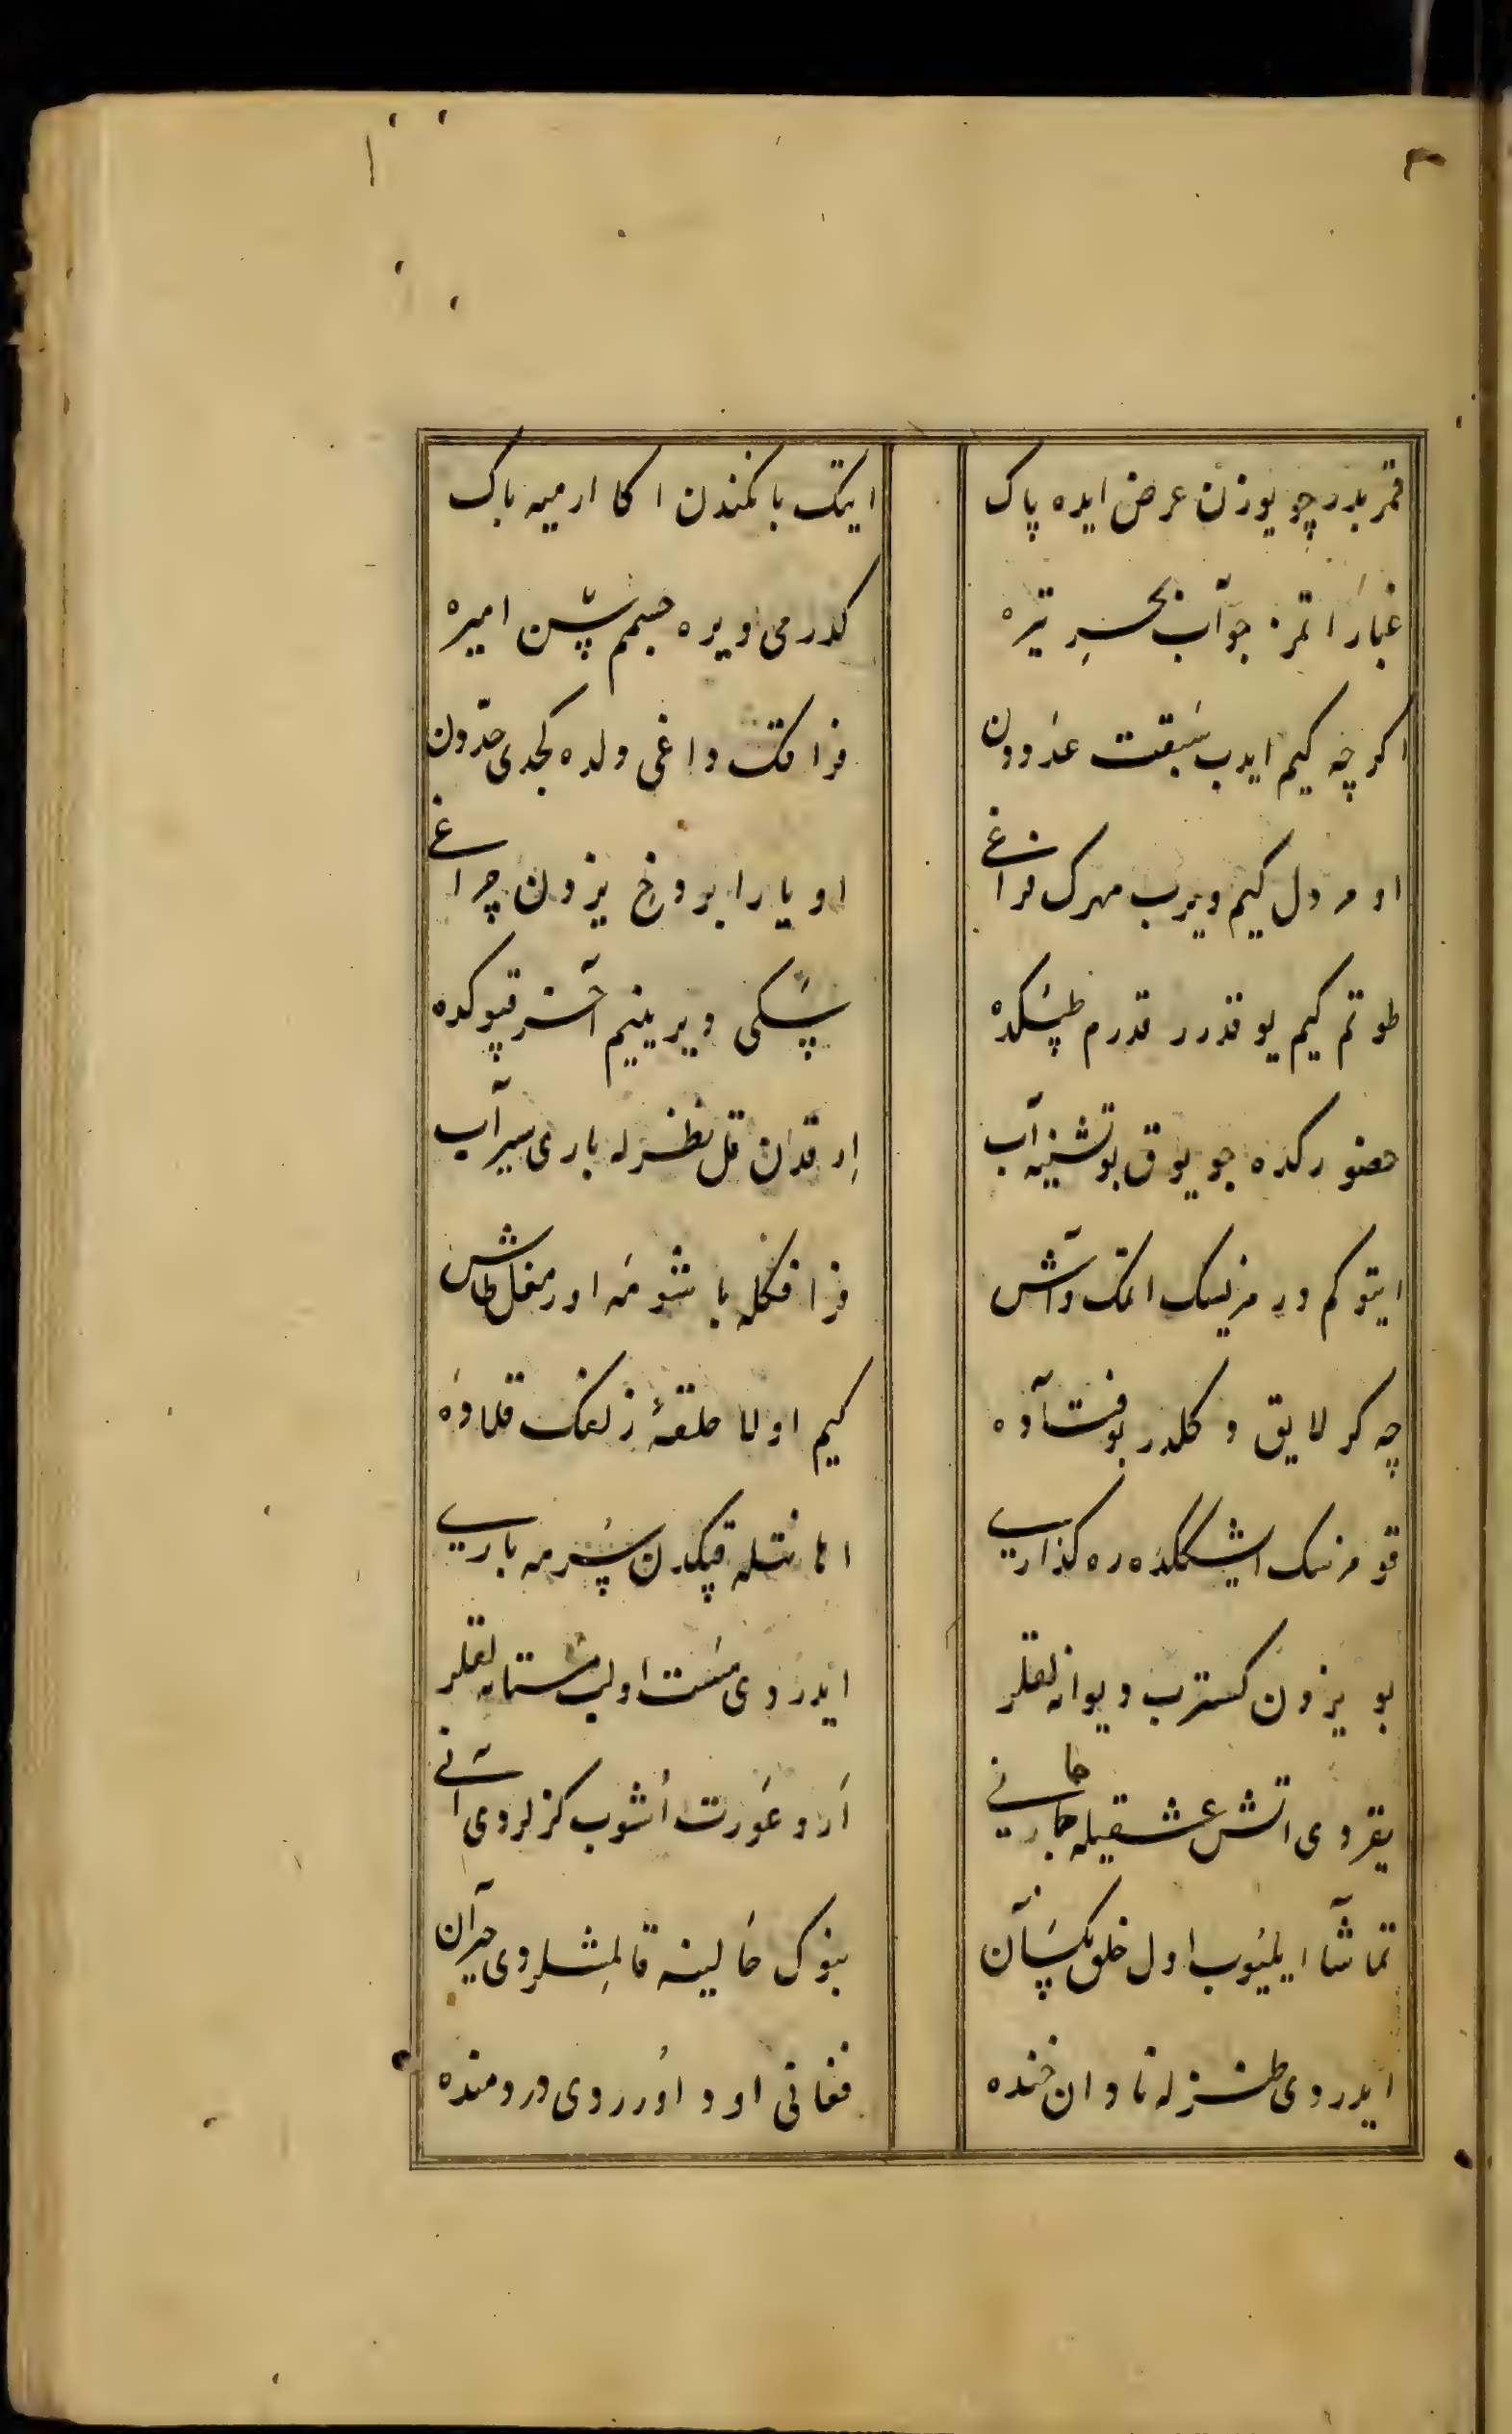 قمر بدر چو یوزن عرض ایده پاک ایتک بانکندن اکا ارمیه باک
غبار اتمز چو آب بحر تیره کدر می ویره جیم پشن امیره
اکر چه کیم ایدب سبقت عدودن فراقک داغی ولده کجدی حدون
او مر دل کیم ویرب مهرک فراغی اویارا بر وخ یزون چراغی
طوتم کیم یوقدرر قدرم طپکده پسکی ویرینیم آخر قپوکده
حضورکده چو یوق بو تشنیه آب ار قدان قل نظرله باری سیرآب
ایتوکم ور مزیسک اتمک و آش فراقکله باشومه اورمغل طاش
چه کر لایق دکلدر بو فتاده کیم اولا حلقهٔ زلفک قلاده
قومزسک اشککده رهکذاری اهانتله قپکدن سرمه باری
بو یزدن کسترب دیوانه لقلر ایدردی مست اولب مستانه لقلر
یقردی اتش عشقیله جانی ار و عورت اشوب کزلردی آنی
تماشا ایلیوب اول خلق یکسان بنوک حالینه قالمشلردی حیران
ایدردی طنزله نادان خنده فغانی اود اوردی دردمنده